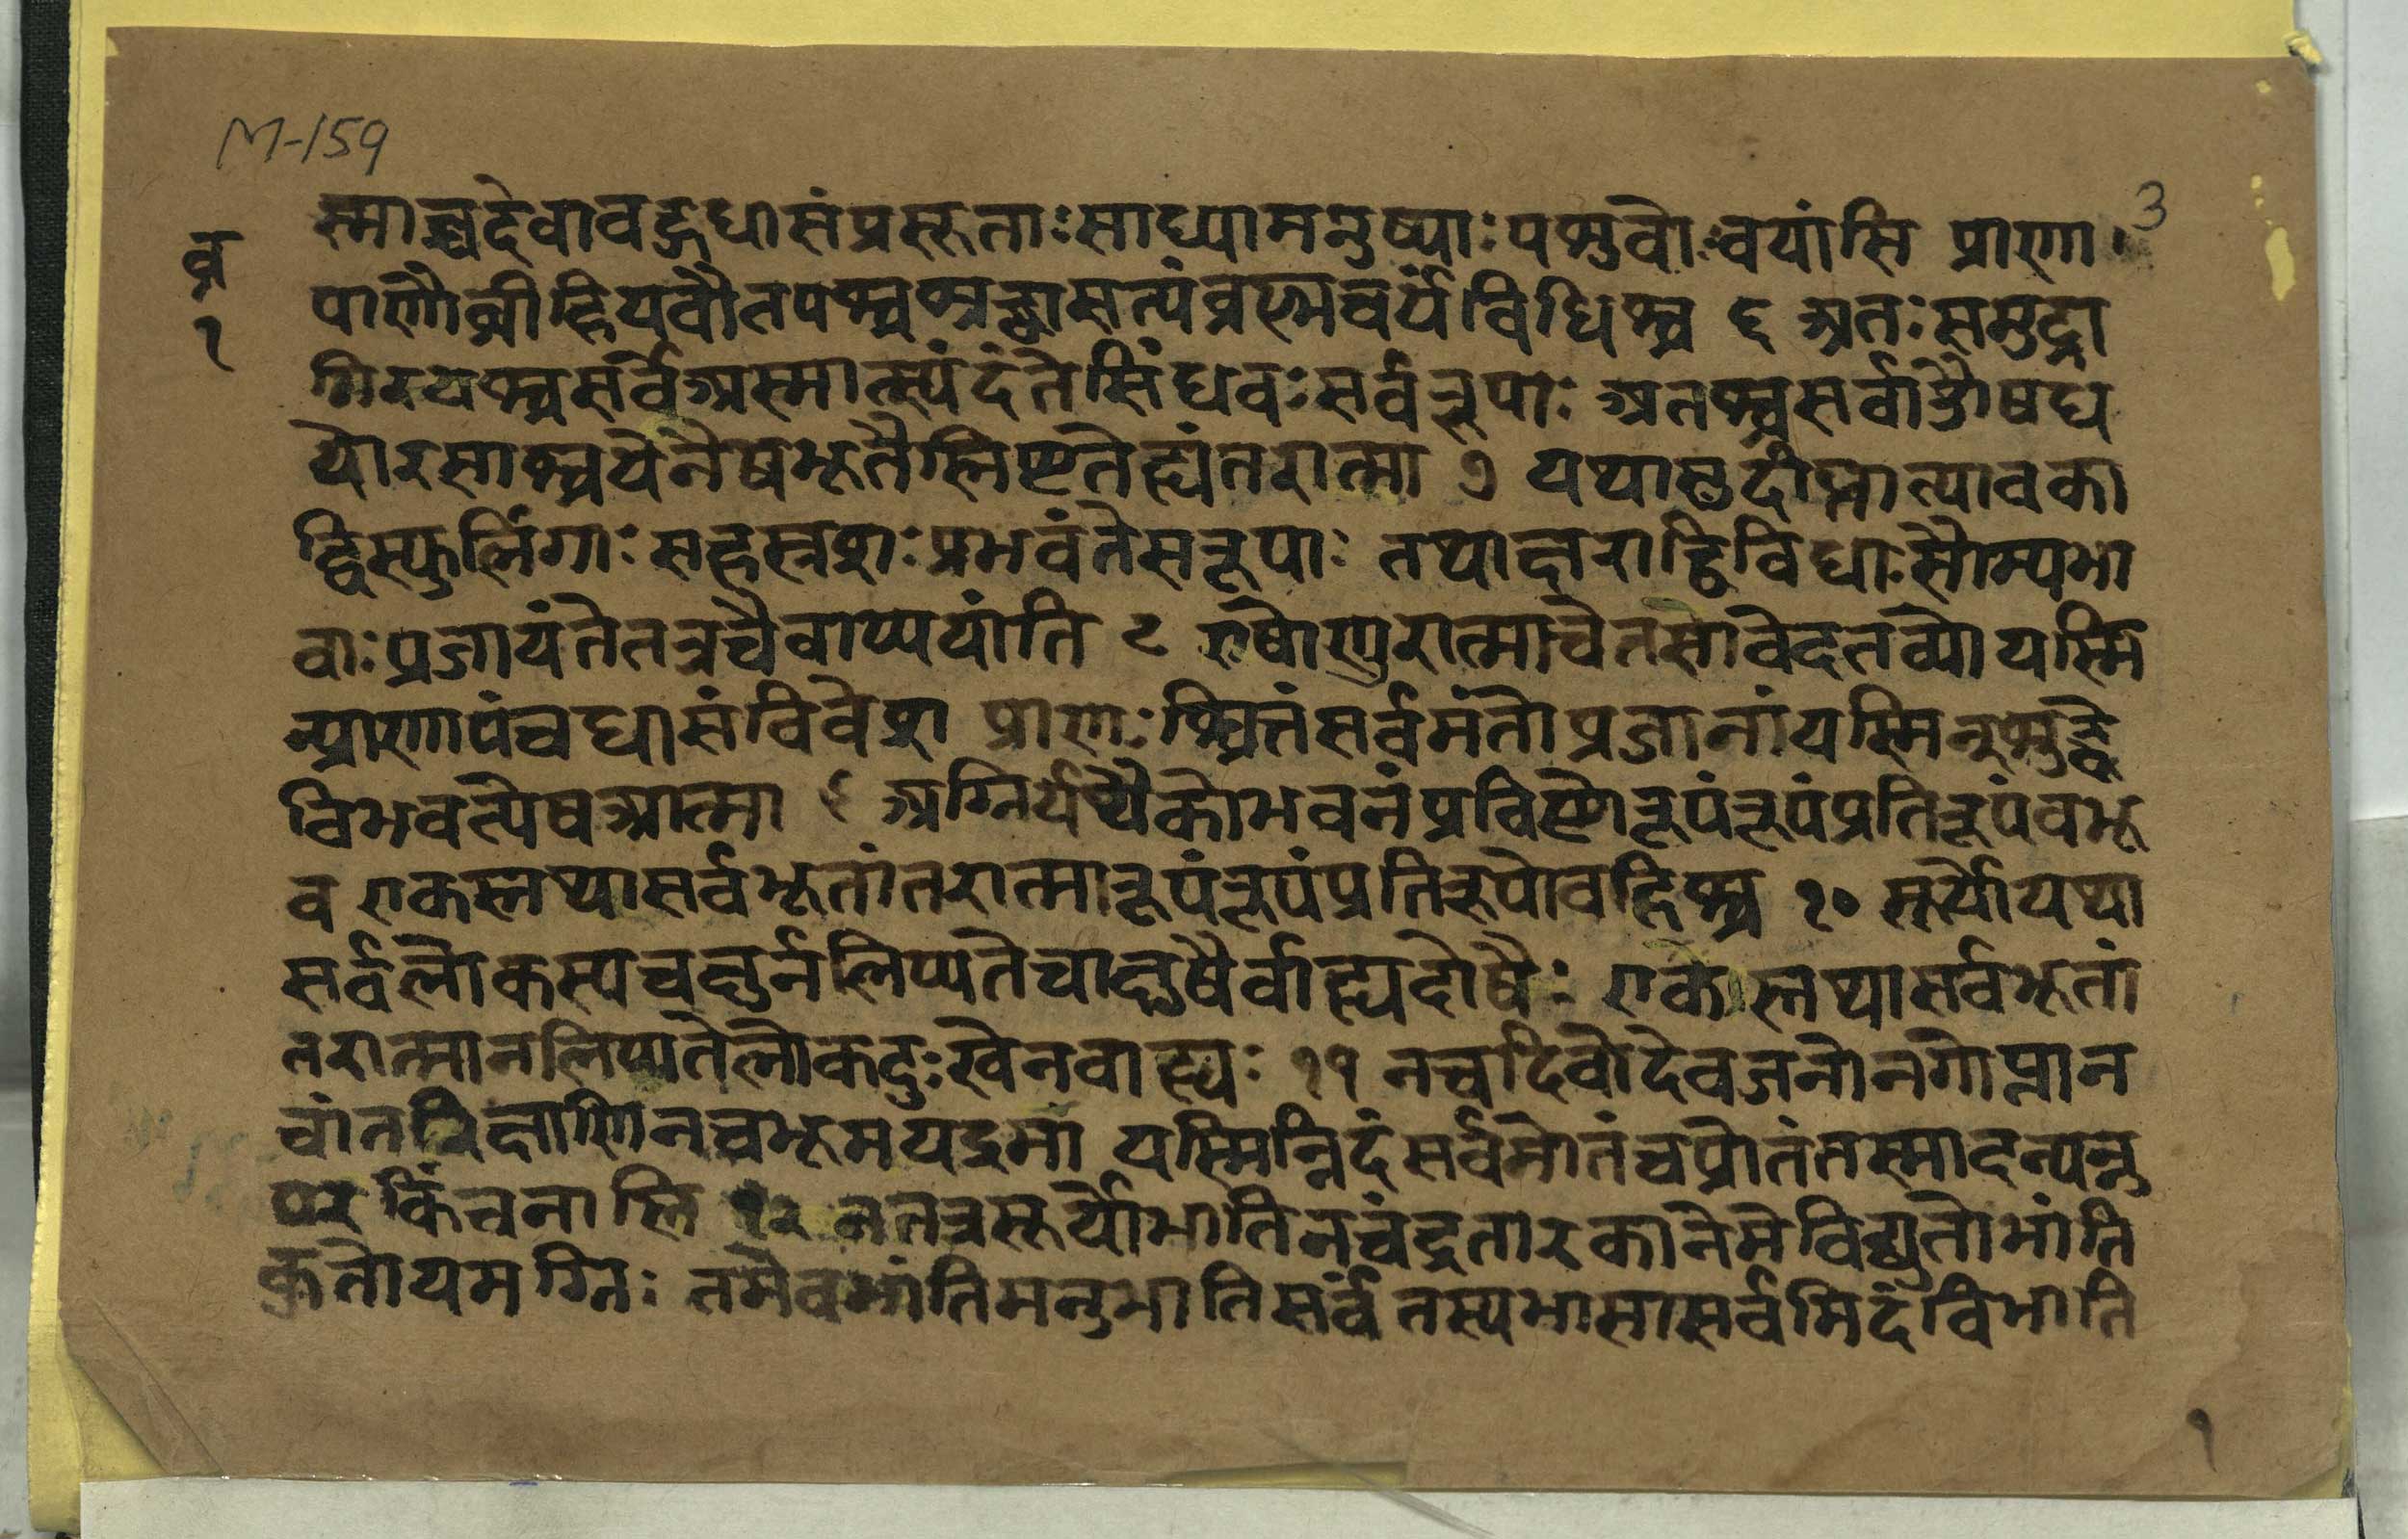 M-159
3
ब्र
१
स्माच्चदेवावहुधासंप्रसूताःसाध्यामनुष्याःपशुवोःवयांसि प्राणा
पाणौव्रीहियवौतपश्चश्रद्धासत्यंब्रह्मचर्यंविधिश्च ६ अतःसमुद्रा
गिरयश्चसर्वेअस्मात्स्पंदंतेसिंधवःसर्वरूपाः अतश्चसर्वाऔषध
योरसाश्चयेनैषभूतैस्तिष्टतेह्यंतरात्मा ७ यथासुदीप्तात्पावका
द्विस्फुलिंगाः सहस्रशःप्रभवंतेसरूपाः तथाक्षराद्विविधाःसौम्यभा
वाःप्रजायंतेतत्रचैवाप्ययांति ८ एषोणुरात्माचेतसोवेदतव्यो यस्मि
न्प्राणापंचधासंविवेश प्राणःश्चित्तंसर्वमंतोप्रजानांयस्मिनुशुद्धे
विभवत्येषआत्मा ९ अग्निर्यथैकोभवनंप्रविष्टोरूपंरूपंप्रतिरूपंवभू
व एकस्तथासर्वभूतांतरात्मारूपंरूपंप्रतिरूपोवहिश्च १० सूर्योयथा
सर्वलोकस्यचक्षुर्नलिप्यतेचाक्षुषैर्वाह्यदोषैः एकस्तथासर्वभूतां
तरात्मानलिप्यतेलोकदुःखेनवाह्यः ११ नचदिवोदेवजनोनगोप्तान
चांतरिक्षाणिनचभूमयइमा यस्मिन्निदंसर्वमोतंचप्रोतंतस्मादन्यन्न
पर किंचनास्ति १२ नतत्रसूर्योभातिनचंद्रतारकानेमेविद्युतोभांति
कुतोयमग्निः तमेवभांतिमनुभातिसर्वं तस्यभासासर्वमिदंविभाति
१